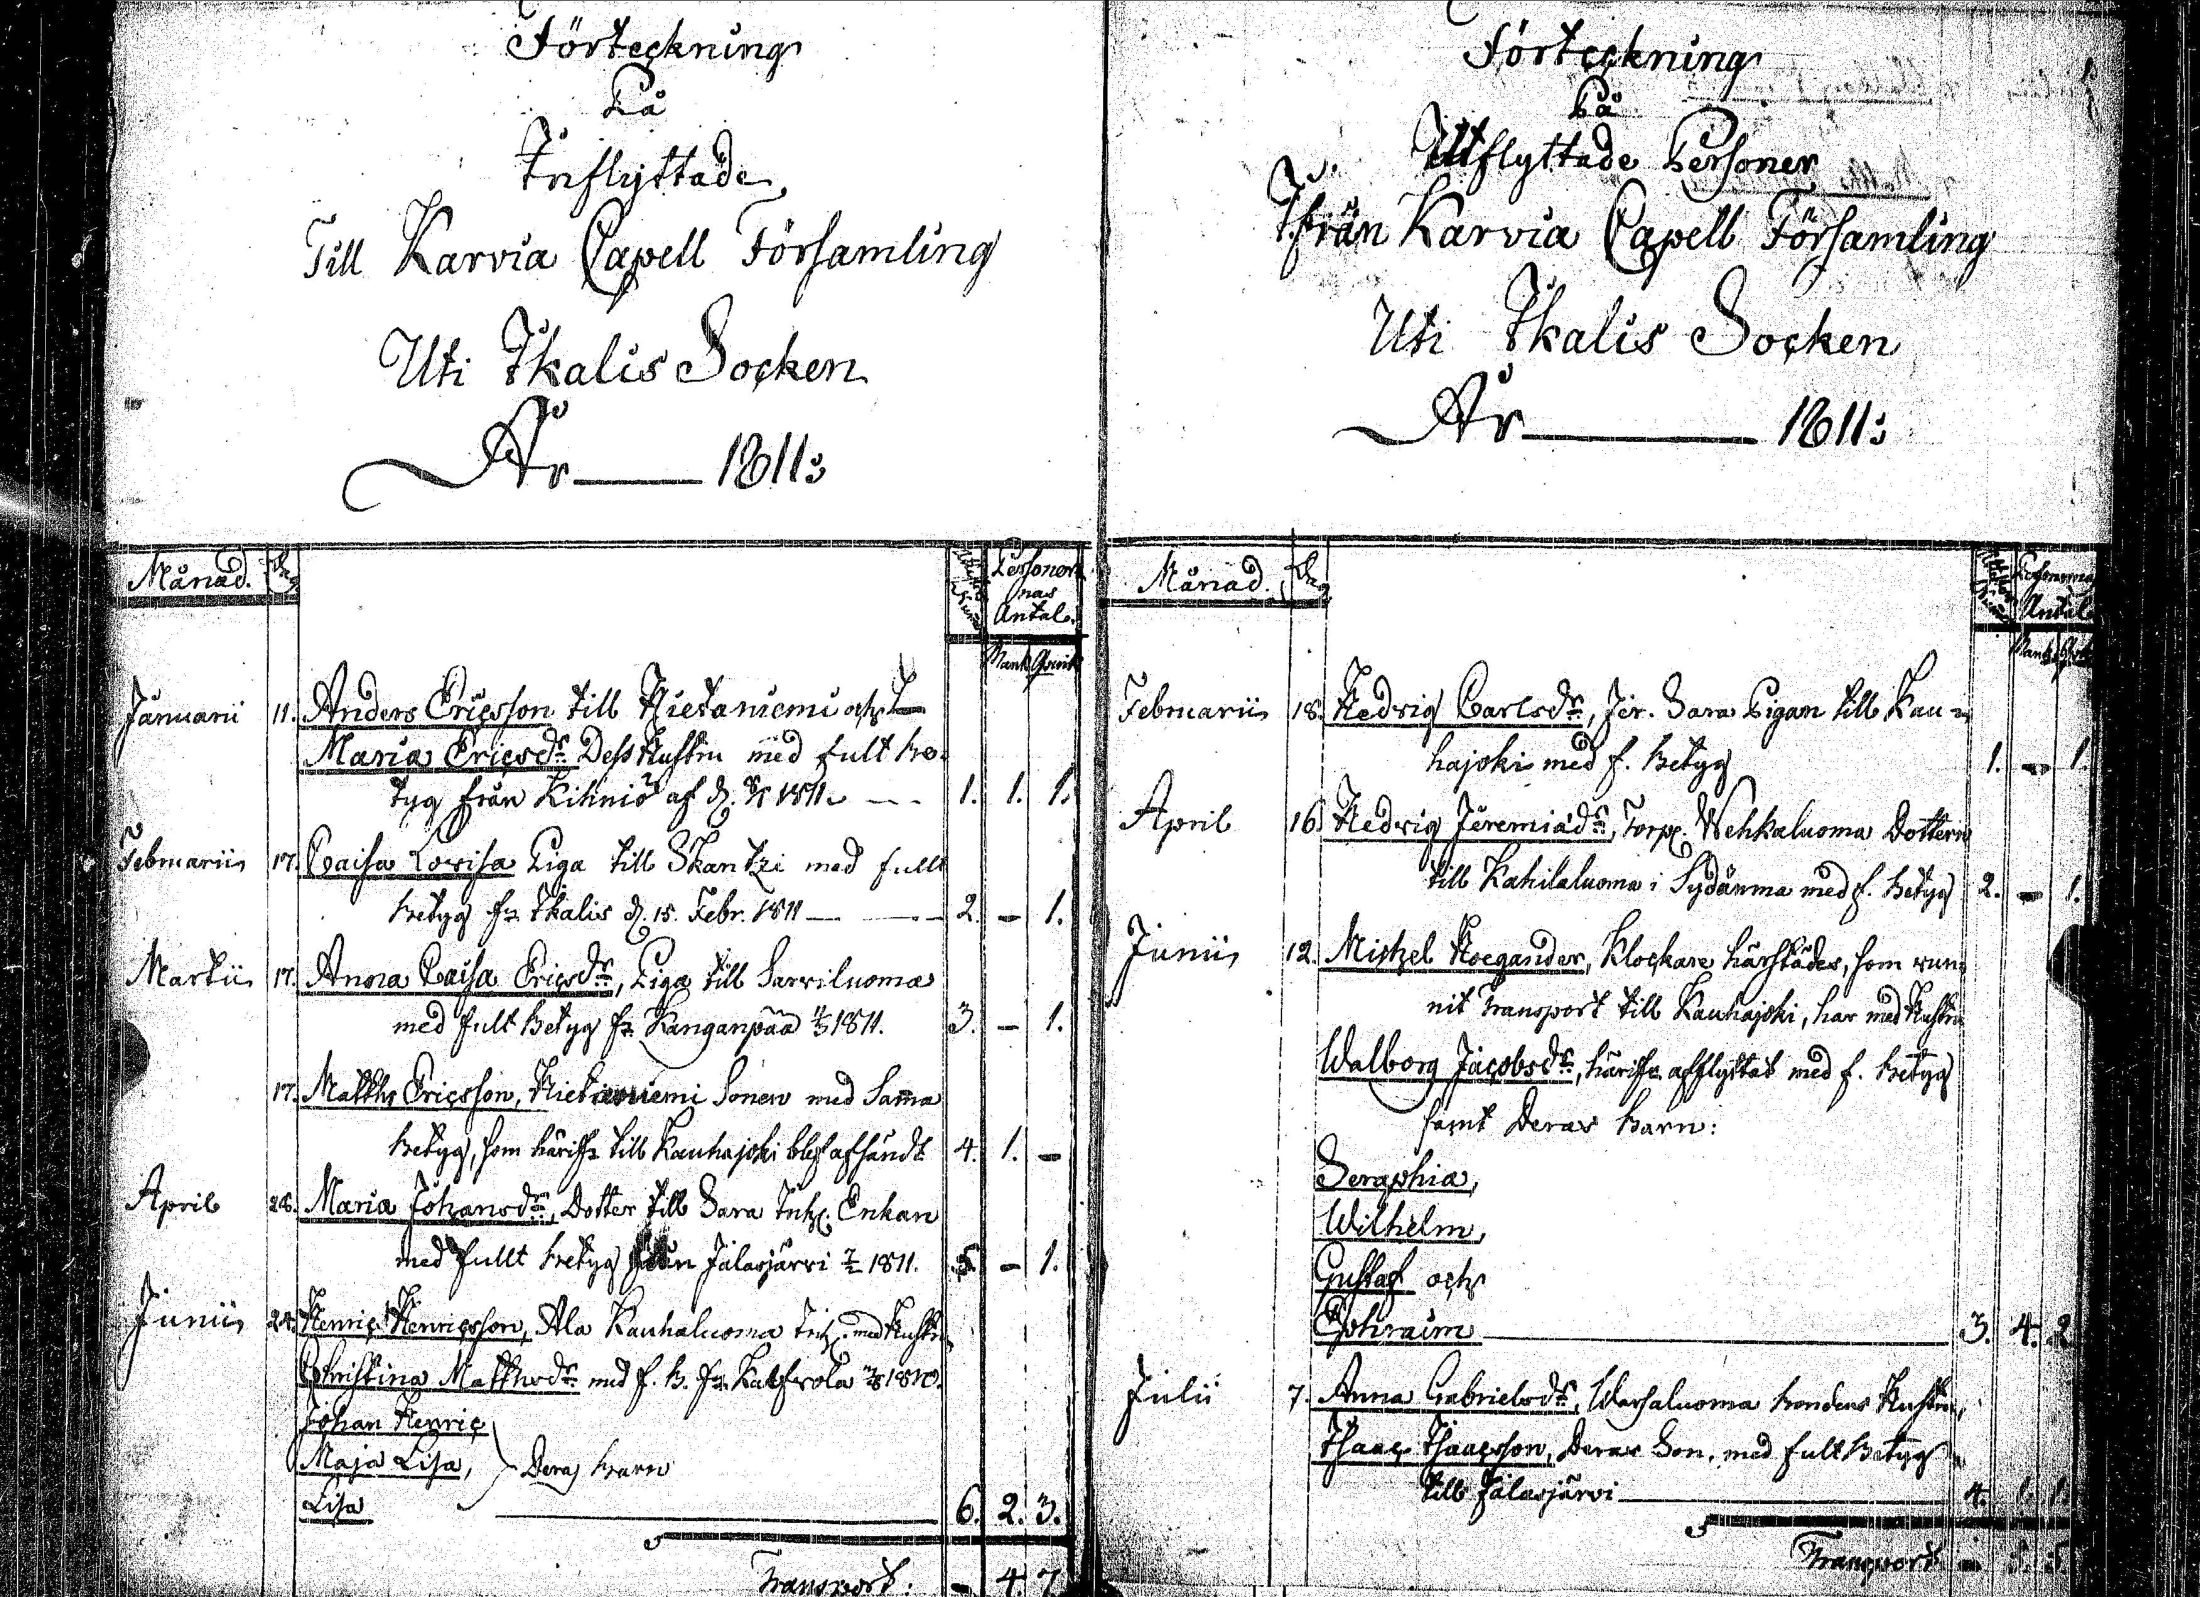 Förteckning
På
Inflyttade
Till Karvia Capell Församling
Uti Ikalis Socken
År 1811:
Månad. Dag
Personer
nas
Antal.
Mank Qvink
Januarii 11. Anders Ericsson till Hietaniemi och
Maria Ericsdr. Dess Hustru med fult be-
tyg från Kihniö af d. 1811. 1. 1. 1.
Februarii 17. Caisa Lovisa Piga till Skantzi med fullt
betyg fr. Ikalis d. 15. Febr. 1811 2. - 1.
Martii 17. Anna Caisa Ericsdr., Piga till Sarviluoma
med fult betyg fr. Kanganpää 1811. 3. - 1.
17. Matths Ericsson, Hietaniemi Sonen med Samma
betyg, som härifr. till Kauhajoki blef afsändt 4. 1. -
April 28. Maria Johansdr., Dotter till Sara Inh. Enkan
med fullt betyg från Jalasjärvi 1811. 5. - 1.
Junii 24. Henric Henricsson, Ala Kauhaluoma Inh. med Hustru
Christina Matthsdr. med f. b. fr. 1810.
Johan Henric
Maja Lisa, Deras barn
Lisa 6. 2. 3.
Transport: - 4. 7.
Förteckning
På
Utflyttade Personer
Ifrån Karvia Capell Församling
Uti Ikalis Socken
År 1811:
Månad. Dag
Personernas
Antal
Mank Qvink
Februarii 18. Hedvig Carlsdr., Jer. Sara Pigan till Kau-
hajoki med f. betyg 1. - 1.
April 16. Hedvig Jeremiadr., Torp. Wehkaluoma Dottern
till Kahilaluoma i Sydänma med f. betyg 2. - 1.
Junii 12. Michel Roegander, Klockare härstädes, som vun-
nit Transport till Kauhajoki, har med Hustru
Walborg Jacobsdr., härifr. afflyttat med f. betyg
samt Deras barn:
Seraphia,
Wilhelm,
Gustaf och
Ephraim 3. 4. 2
Julii 7. Anna Gabrielsdr., Warsaluoma bondens Hustru,
Isaac Isaacsson, Deras Son, med fult betyg
till Jalasjärvi 4. 1. 1.
Transport - 5. 5.